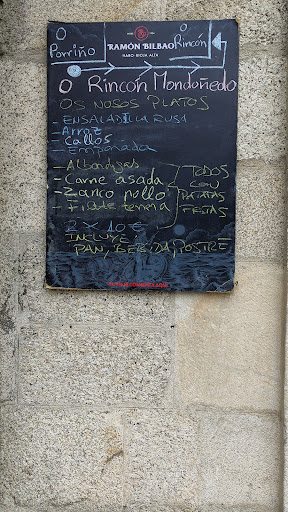 RAMÓN BILBAO
HARO·RIOJA ALTA
O Porriño
O Rincón
O Rincón Mondoñedo
OS NOSOS PLATOS
- ENSALADILLA RUSA
- Arroz
- Callos
- Empanada
- Albondigas
- Carne asada
- Zanco pollo
- Filete ternera
TODOS
CON
PATATAS
FRITAS
2 X 10 €
INCLUYE
PAN, BEBIDA, POSTRE